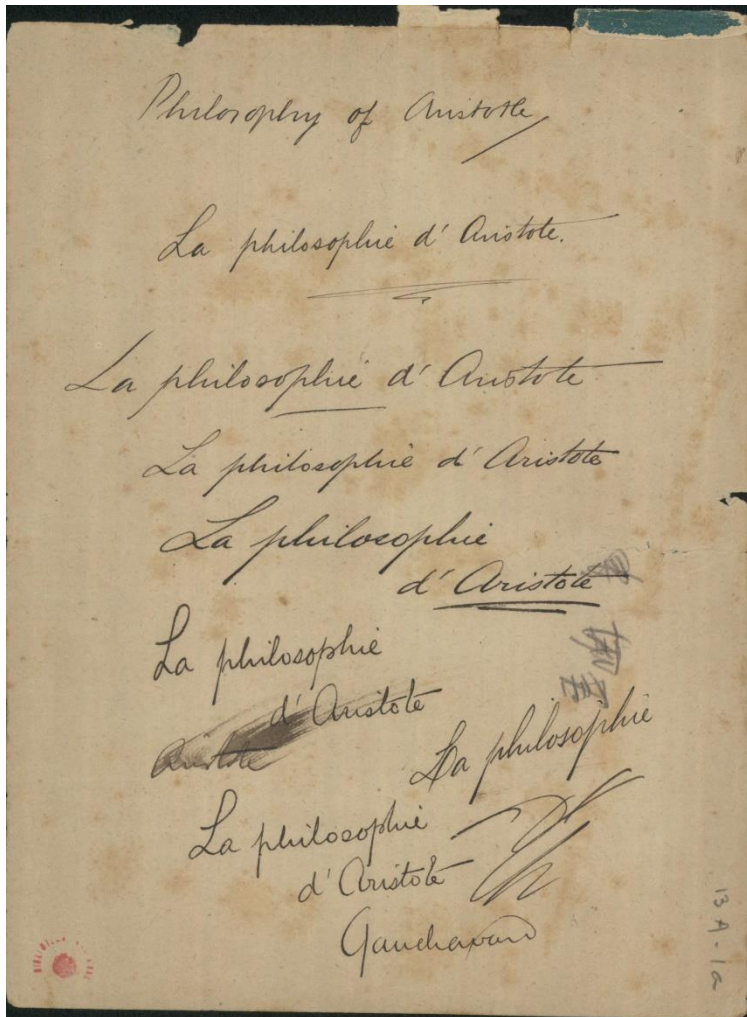 Philosophy of Aristotle
La philosophie d'Aristote.
La philosophie d'Aristote
La philosophie d'Aristote
La philosophie
d'Aristote
La philosophie
d'Aristote
Aristote
La philosophie
La philosophie
d'Aristote
13A-1a